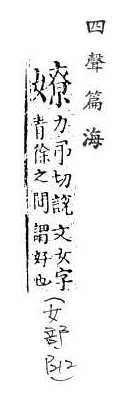 四聲篇海
嫽
力吊切說文女字
青徐之間謂好也
(女部
B12)